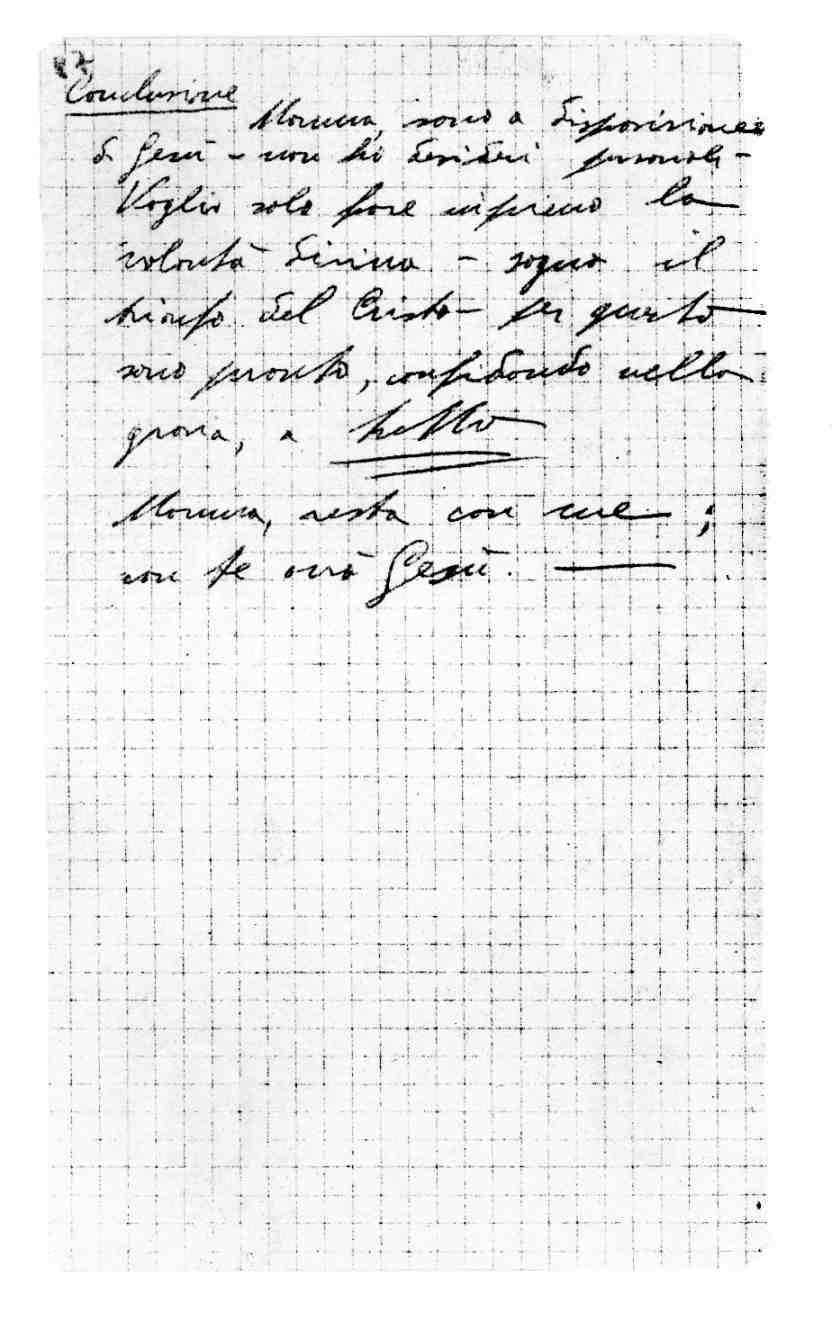 Conclusione
Mamma, sono a disposizione
di Gesù - non ho desideri personali -
Voglio solo fare in pieno la
volontà divina - sogno il
trionfo del Cristo - per questo
sono pronto, confidando nella
grazia, a tutto
Mamma, resta con me ;
con te avrò Gesù.